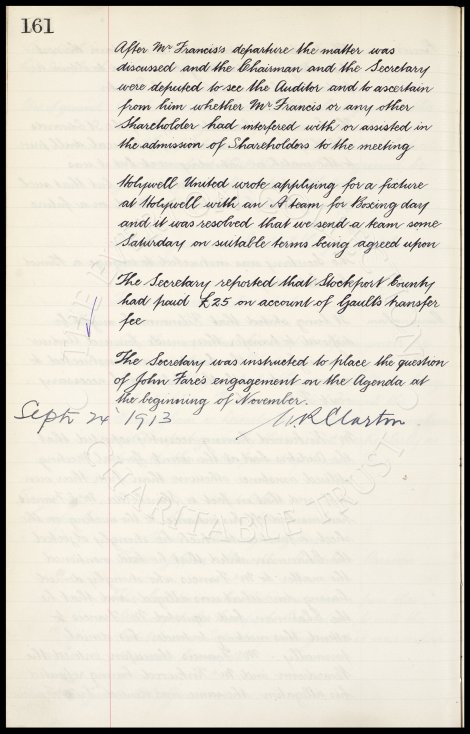 161
After Mr Francis's departure the matter was
discussed and the Chairman and the Secretary
were deputed to see the Auditor and to ascertain
from him whether Mr Francis or any other
Shareholder had interfered with or assisted in
the admission of Shareholders to the meeting
Holywell United wrote applying for a fixture
at Holywell with an A team for Boxing day
and it was resolved that we send a team some
Saturday on suitable terms being agreed upon
The Secretary reported that Stockport County
had paid £25 on account of Gaults transfer
fee
The Secretary was instructed to place the question
of John Fare's engagement on the Agenda at
the beginning of November.
Sept 24 1913 W R Clayton
CHARITABLE TRUST